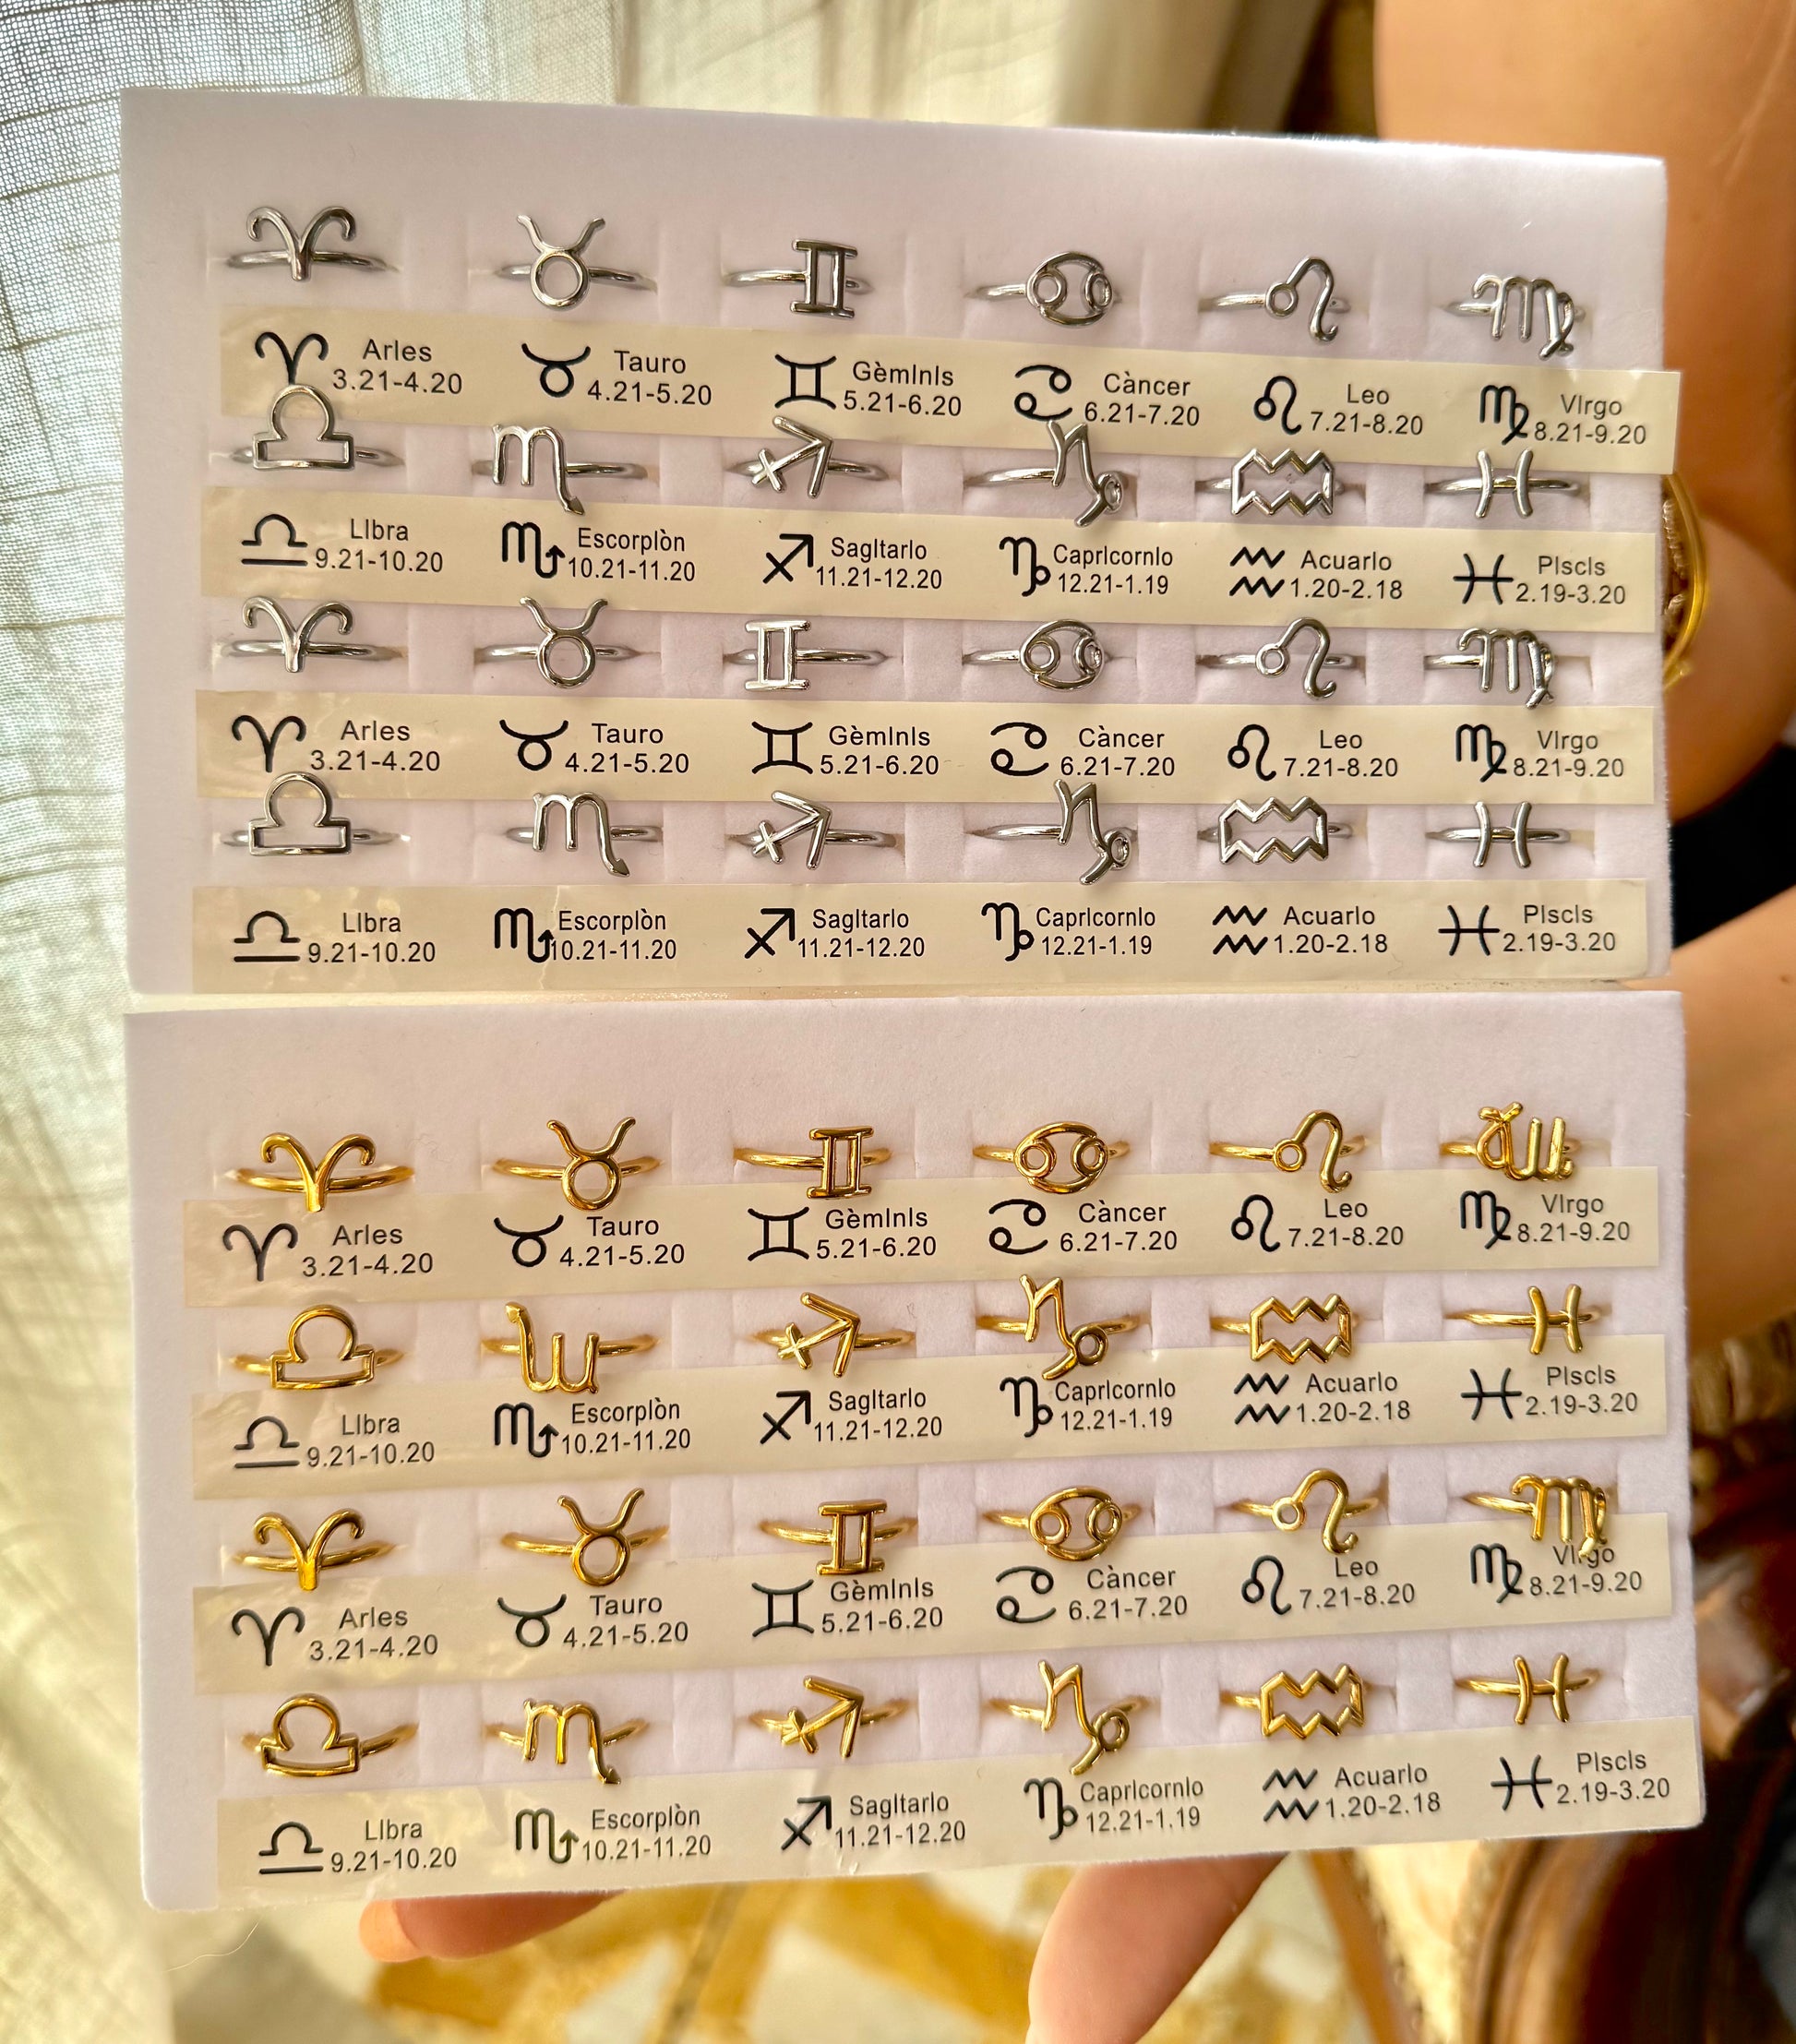 ArIes
3.21-4.20
Tauro
4.21-5.20
GèmInIs
5.21-6.20
Càncer
6.21-7.20
Leo
7.21-8.20
VIrgo
8.21-9.20
LIbra
9.21-10.20
EscorpIòn
10.21-11.20
SagItarIo
11.21-12.20
CaprIcornIo
12.21-1.19
AcuarIo
1.20-2.18
PIscIs
2.19-3.20
ArIes
3.21-4.20
Tauro
4.21-5.20
GèmInIs
5.21-6.20
Càncer
6.21-7.20
Leo
7.21-8.20
VIrgo
8.21-9.20
LIbra
9.21-10.20
EscorpIòn
10.21-11.20
SagItarIo
11.21-12.20
CaprIcornIo
12.21-1.19
AcuarIo
1.20-2.18
PIscIs
2.19-3.20
ArIes
3.21-4.20
Tauro
4.21-5.20
GèmInIs
5.21-6.20
Càncer
6.21-7.20
Leo
7.21-8.20
VIrgo
8.21-9.20
LIbra
9.21-10.20
EscorpIòn
10.21-11.20
SagItarIo
11.21-12.20
CaprIcornIo
12.21-1.19
AcuarIo
1.20-2.18
PIscIs
2.19-3.20
ArIes
3.21-4.20
Tauro
4.21-5.20
GèmInIs
5.21-6.20
Càncer
6.21-7.20
Leo
7.21-8.20
VIrgo
8.21-9.20
LIbra
9.21-10.20
EscorpIòn
10.21-11.20
SagItarIo
11.21-12.20
CaprIcornIo
12.21-1.19
AcuarIo
1.20-2.18
PIscIs
2.19-3.20